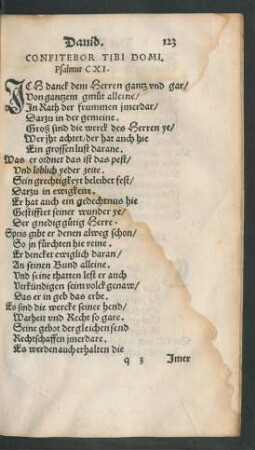 David. 123
CONFITEBOR TIBI DOMI.
Psalmus CXI.
ICH danck dem Herren gantz vnd gar/
Von gantzem gmüt alleine/
In Rath der frummen jmerdar/
Darzu in der gemeine.
Groß sind die werck des Herren ye/
Wer jhr achtet/der hat auch hie
Ein grossen lust darane.
Was er ordnet das ist das pest/
Vnd loblich yeder zeite.
Sein grechtigkeyt beleibet fest/
Darzu in ewigkeite.
Er hat auch ein gedechtnus hie
Gestifftet seiner wunder ye/
Der gnedig gütig Herre.
Speis gibt er denen alweg schon/
So jn fürchten hie reine.
Er dencket ewiglich daran/
An seinen Bund alleine.
Vnd seine thatten lest er auch
Verkündigen seim volck genaw/
Das er in geb das erbe.
Es sind die wercke seiner hend/
Warheit vnd Recht so gare.
Seine gebot dergleichen send
Rechtschaffen jmerdare.
Es werden auch erhalten die
q 3 Jmer